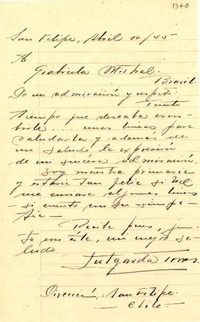 1340
San Felipe, Abril 10/45
A
Gabriela Mistral.
Brasil
De mi admiración y respeto
Tiempo que deseaba escri
birle unas líneas para
saludarla y además de
un saludo la expresión
de mi sincera admiración
Soy maestra primaria
y estaría tan feliz si Ud
me enviara algunas líneas
si cuento con su simpa
tía
Reciba pues, jun
to con éste, un mejor sa
ludo
Lutgarda
San Felipe
Chile